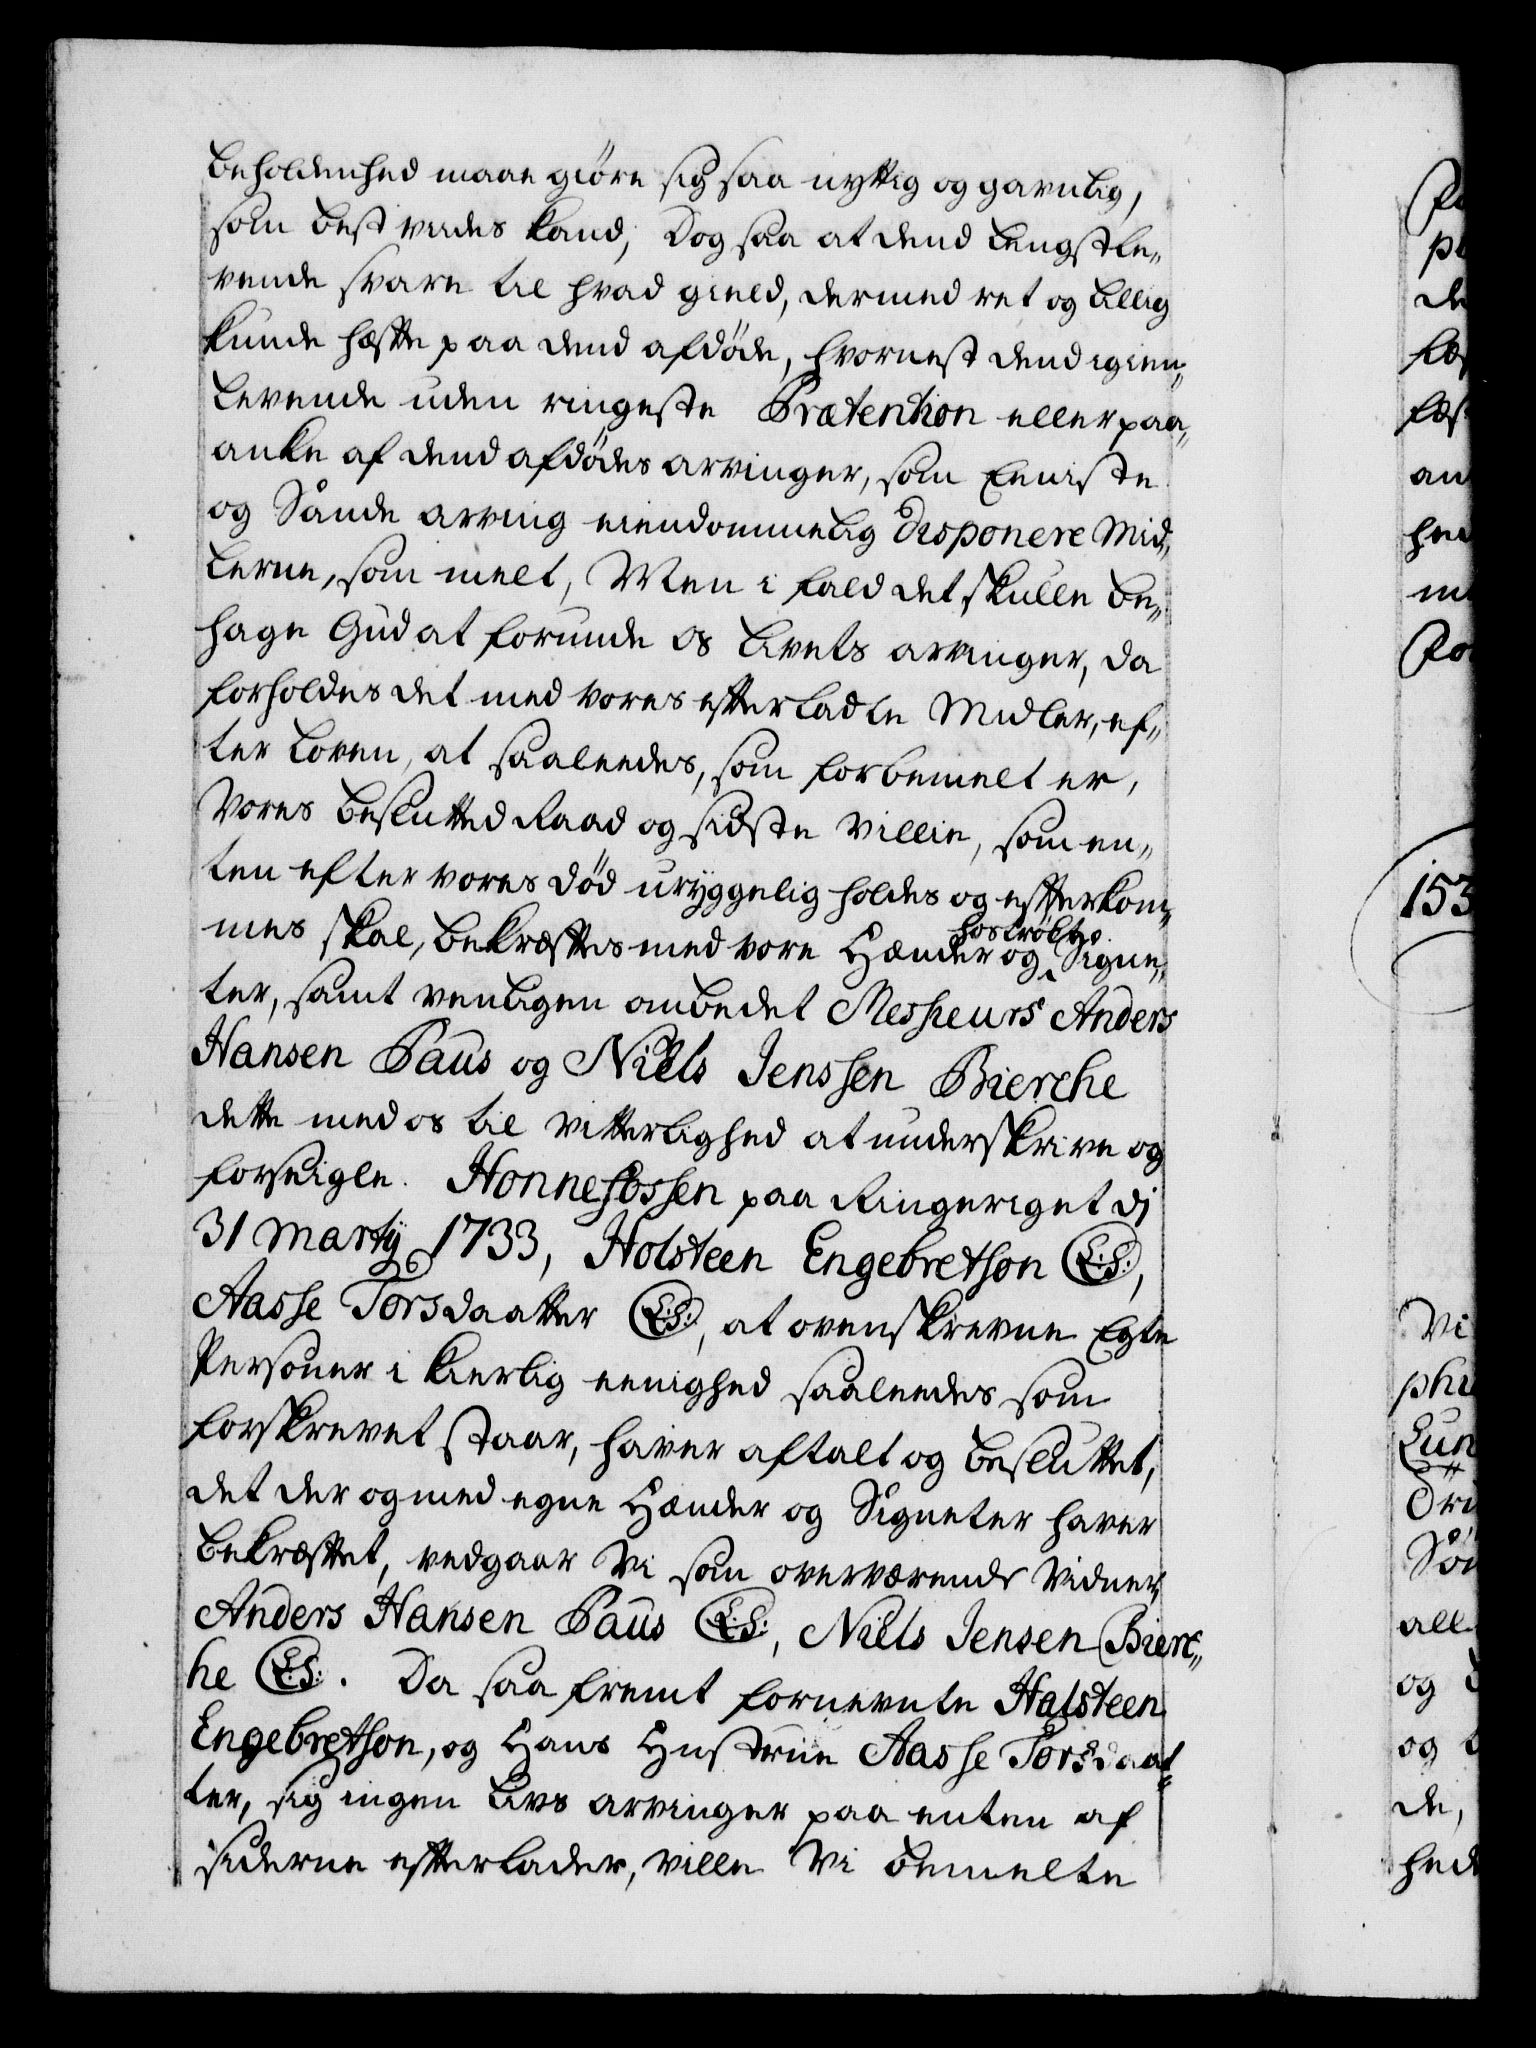 beholdenhed maae giöre sig saa nyttig og gavnlig,
som best veedes kand, Dog saa at dend lengstle„
vende svare til hvad gield, dermed ret og billig
kunde hæfte paa dend afdöde, hvornest dend igien„
levende uden ringeste Prætention eller paa„
anke af dend afdödes arvinger, som Eeniste
og Sande arving eiendommelig disponere Mid„
lerne, som melt, Men i fald det skulle be„
hage Gud at forunde os Livets arvinger, da
forholdes det med vores efterladte Midler, ef„
ter Loven, at saaleedes, som forbemelt er,
Vores beslutted Raad og sidste Villie, som en„
ten efter vores död uryggelig holdes og efterkom„
mes skal, bekræftes med vore Hænder og hoströgte Signe„
ter, samt venligen ombedet Messieurs Anders
Hansen Paus og Niels Jenssen Bierche
dette med os til vitterlighed at underskrive og
forseigle. Honnefossen paa Ringeriget dj
31 Martij 1733, Holsteen Engebretson (L:S:),
Aasse Torsdaatter (L:S:), at ovenskrevne Egte
Personer i kierlig eenighed saaleedes som
forskrevet staar, haver aftalt og besluttet,
det der og med egne Hænder og Signeter haver
bekræftet, vedgaar Vi som overværende Vidner,
Anders Hansen Paus (L:S:), Niels Jensen Bierc„
he (L:S:). Da saa fremt fornevnte Halsteen
Engebretson, og Hans Hustrue Aasse Torsdaat„
ter, sig ingen Livs arvinger paa enten af
siderne efterlader, ville Vi bemelte
153